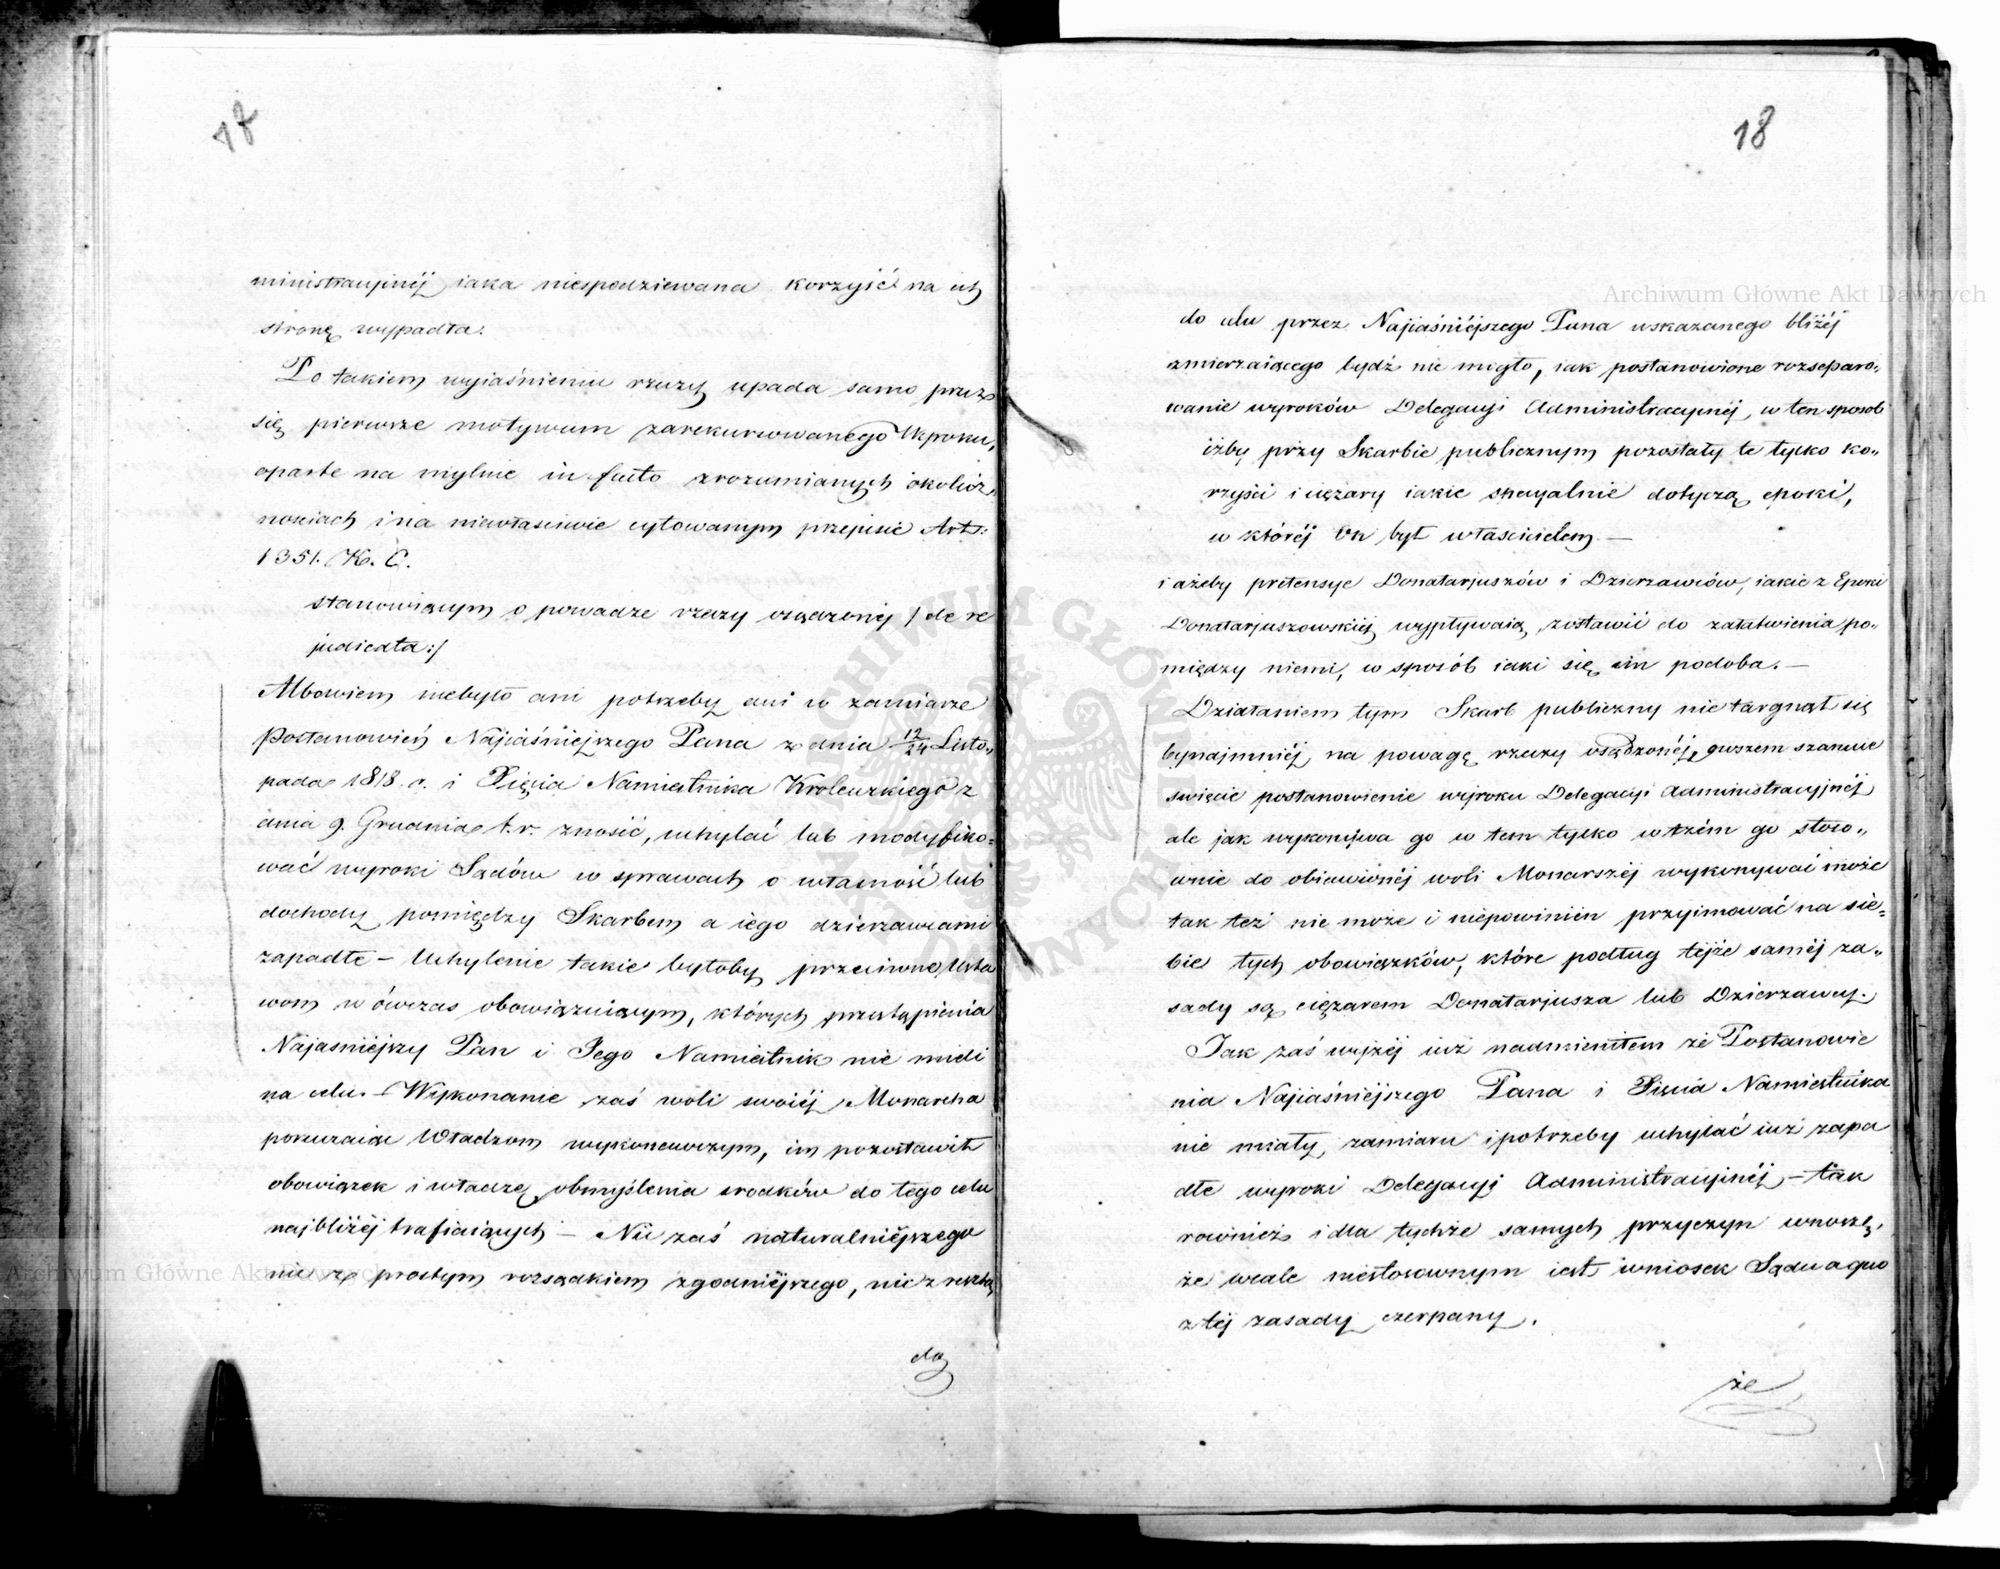 17
ministracyjnéj iaka niespodziewana korzyść na ich
stronę wypadła.
Po takiem wyiaśnieniu rzeczy upada samo przez
się pierwsze motywum zarekurowanego Wyroku,
oparte na mylnie in facto zrozumianych okolicz„
nosciach i na niewłasciwie cytowanym przepisie Art:
1351. K. C.
stanowiącym o powadze rzeczy osądzonéj /de re
judicata:/
Albowiem niebyło ani potrzeby ani w zamiarze
Postanowień Najiaśniejszego Pana z dnia 12/24 Listo„
pada 1818. r. i Xięcia Namiestnika Krolewskiego z
dnia 9. Grudnia t.r. znosić, uchylać lub modyfiko„
wać wyroki Sądów w sprawach o własność lub
dochody pomiędzy Skarbem a iego dzierzawcami
zapadłe – Uchylenie takie byłoby przeciwne Usta
wom w ówczas obowiązuiącym, których przestąpienia
Najasniejszy Pan i Jego Namiestnik nie mieli
na celu. – Wykonanie zaś woli swoiéj Monarcha
poruczaiąc Władzom wykonawczym, im pozostawił
obowiązek i władzę obmyślenia srodków do tego celu
najbliżéj trafiaiących – Nic zaś naturalniejszego
nic z prostym rozsądkiem zgodniejszego, nic z resztą
do
18
do celu przez Najiaśniejszego Pana wskazanego bliżéj
zmierzaiącego bydź nie mogło, iak postanowione rozseparo„
wanie wyroków Delegacyi Administracyinéj, w ten sposob
iżby przy Skarbie publicznym pozostały te tylko ko„
rzyści i ciężary iakie specyalnie dotyczą epoki,
w któréj On był właścicielem —
i ażeby pretensye Donatarjuszów i Dzierzawców, iakie z Epoki
Donatarjuszowskiéj wypływaią, zostawić do załatwienia po„
między niemi, w sposób iaki się im podoba. —
Działaniem tym Skarb publiczny nie targnął się
bynajmniéj na powagę rzeczy osądzonéj, owszem szanuie
swięcie postanowienie wyroku Delegacyi Administracyjnéj
ale jak wykonywa go w tem tylko w czém go stoso„
wnie do obiawionéj woli Monarszéj wykonywać może
tak też nie może i niepowinién przyimować na sie„
bie tych obowiązków, które podług téjże saméj za„
sady są ciężarem Donatarjusza lub Dzierzawcy.
Jak zaś wyżéj iuż nadmieniłem że Postanowie
nia Najiaśniejszego Pana i Xięcia Namiestnika
nie miały zamiaru i potrzeby uchylać iuż zapa
dłe wyroki Delegacyi Administracyinéj – tak
rownież i dla tychże samych przyczyn wnoszę,
że wcale niestosownym iest wniosek Sądu a quo
z téj zasady czerpany.
że
Archiwum Główne Akt Dawnych
Archiwum Główne Akt Dawnych
ARCHIWUM GŁÓWNE AKT DAWNYCH